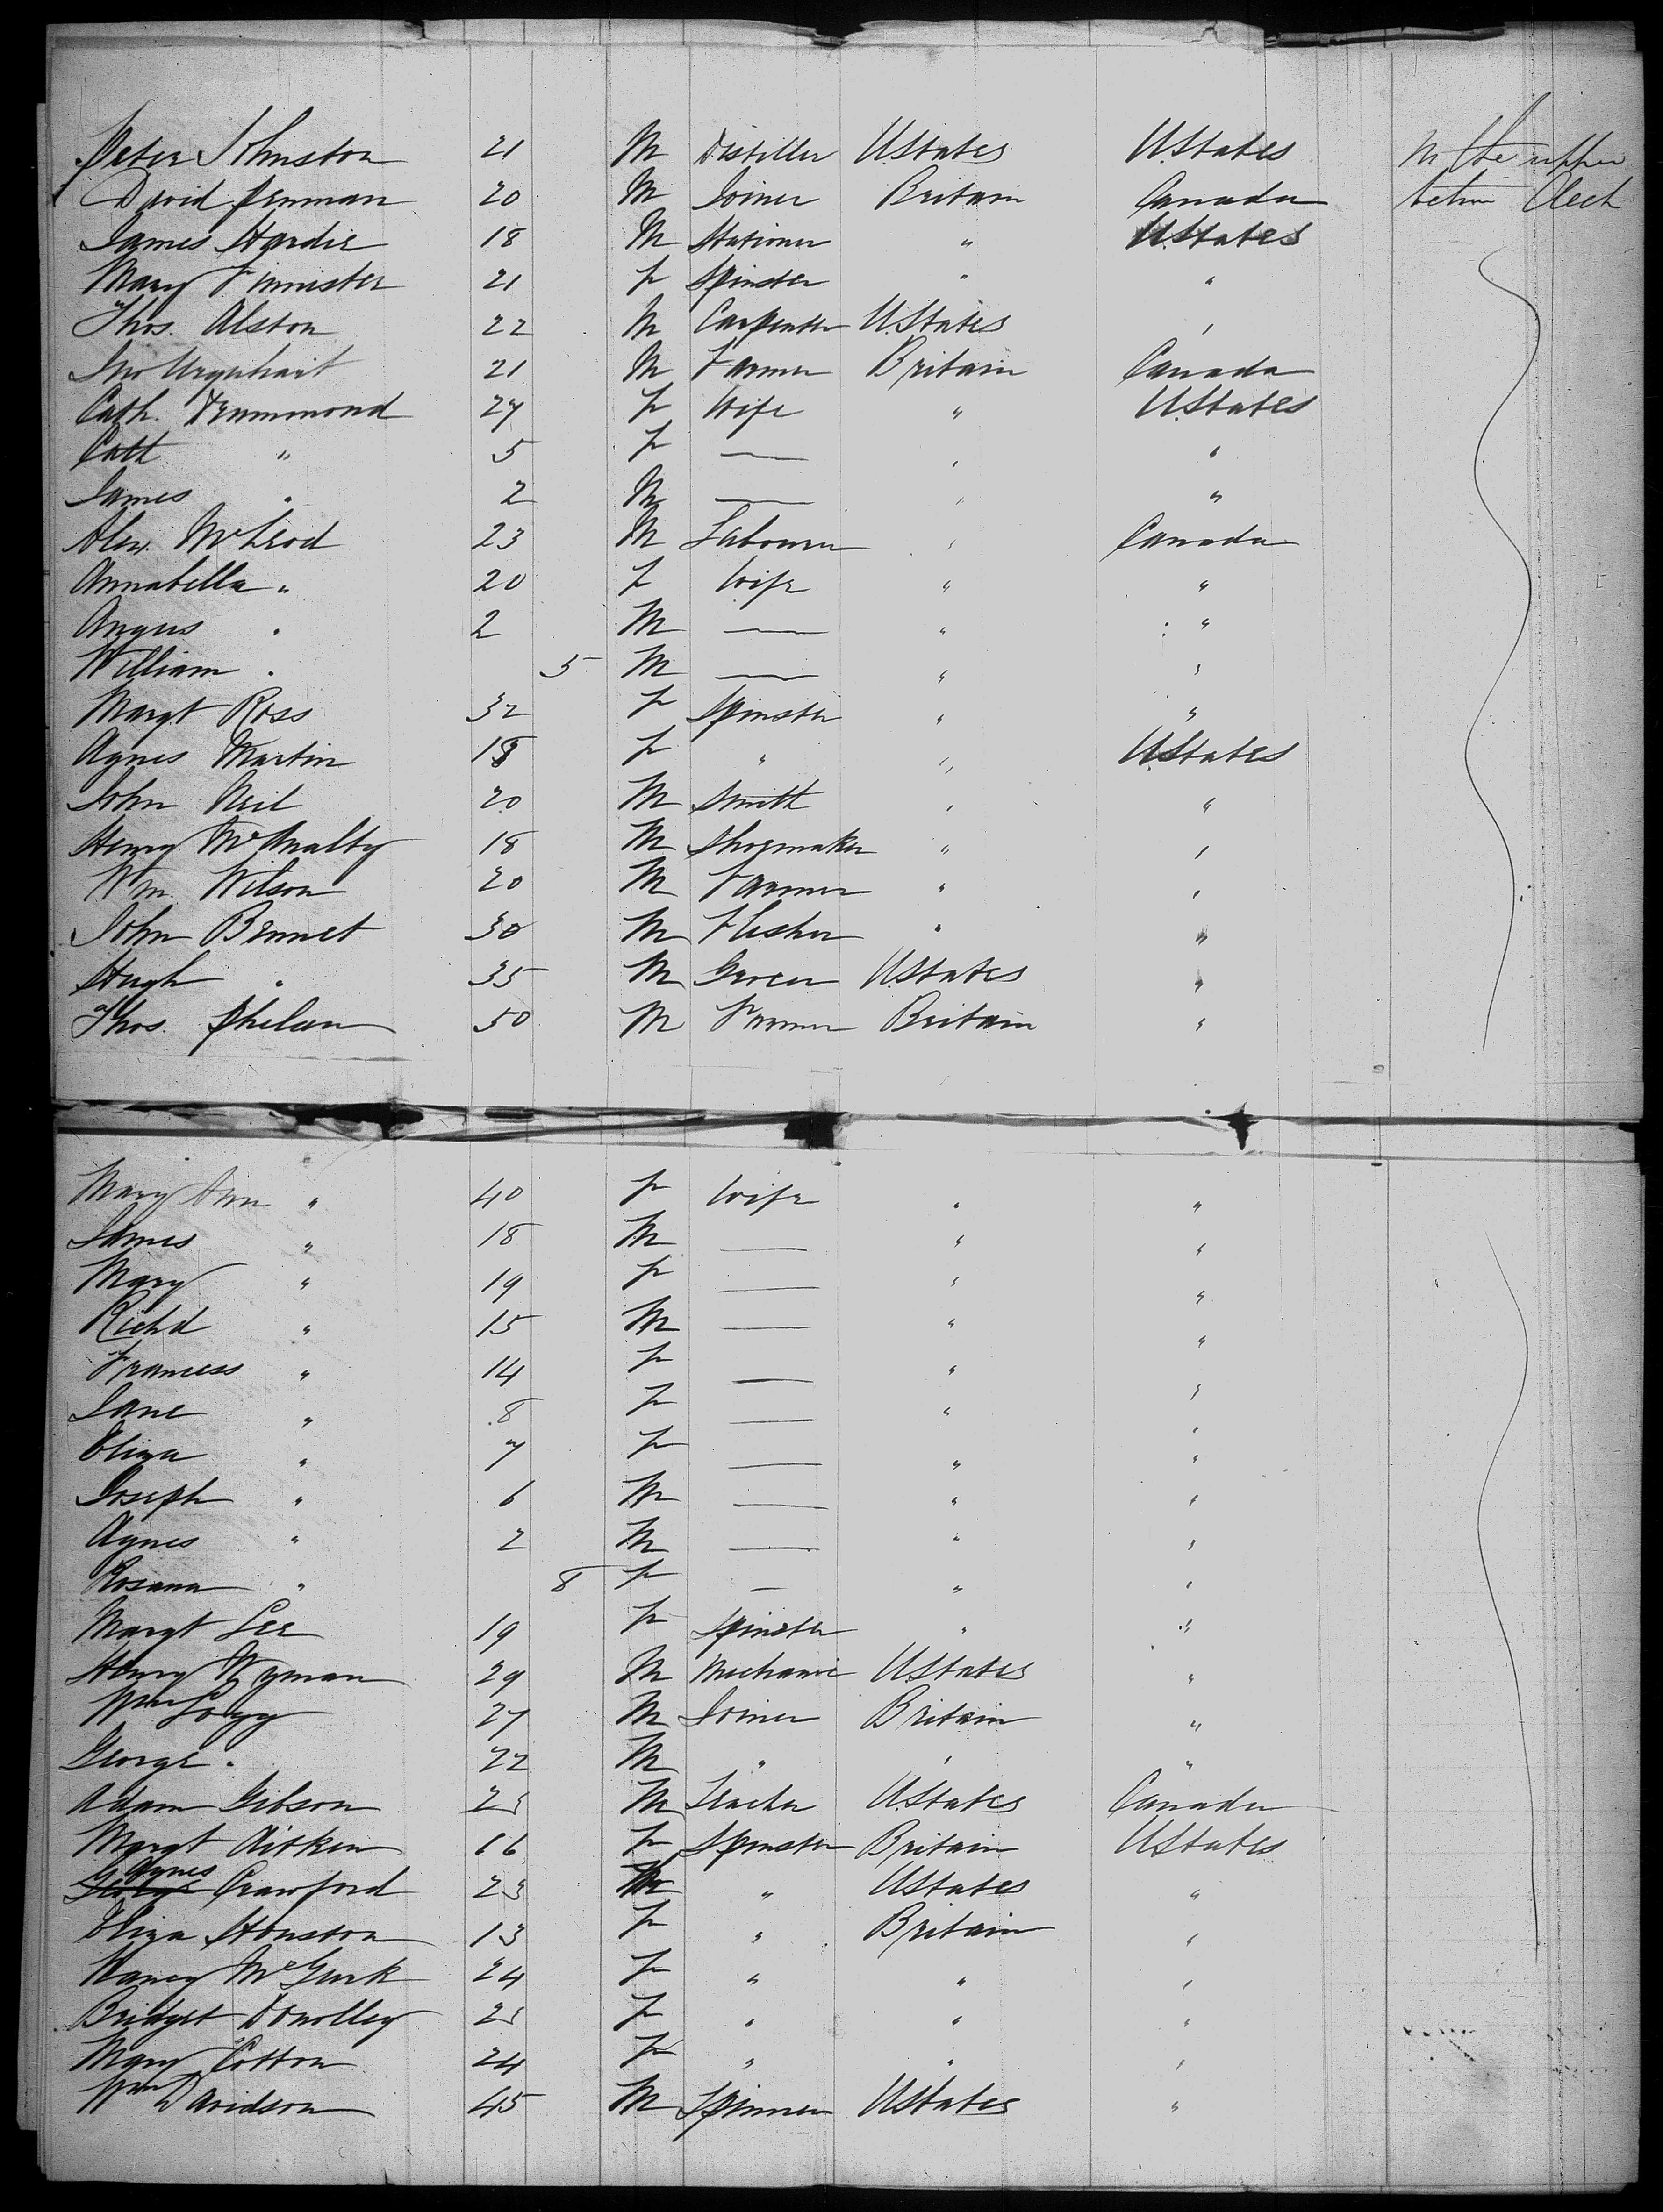 Peter Johnston 21 M Distiller UStates UStates In the upper
David Penman 20 M Joiner Britain Canada betwn Deck
James Hardie 18 M Stationer " UStates
Mary Finnister 21 F Spinster " "
Thos. Alston 22 M Carpenter UStates "
Jno Urquhart 21 M Farmer Britain Canada
Cath. Drummond 27 F Wife " UStates
Cath " 5 F — " "
James " 2 M — " "
Alex. McLeod 23 M Labourer " Canada
Annabella " 20 F Wife " "
Angus " 2 M — " "
William " 5 M — " "
Margt Ross 32 F Spinster " "
Agnes Martin 18 F " " UStates
John Neil 20 M Smith " "
Henry McAnalty 18 M Shoemaker " "
Wm Wilson 20 M Farmer " "
John Bennet 30 M Flesher " "
Hugh " 35 M Grocer UStates "
Thos. Phelan 50 M Farmer Britain "
Mary Ann " 40 F Wife " "
James " 18 M — " "
Mary " 19 F — " "
Richd " 15 M — " "
Francess " 14 F — " "
Jane " 8 F — " "
Eliza " 7 F — " "
Joseph " 6 M — " "
Agnes " 2 M — " "
Rosana " 8 F — " "
Margt Lee 19 F Spinster " "
Henry Wyman 29 M Mechanic UStates "
Wm Logg 27 M Joiner Britain "
George " 22 M " " "
Adam Gibson 23 M Teacher UStates Canada
Margt Aitken 16 F Spinster Britain UStates
Agnes Crawford 23 " UStates "
Eliza Houston 13 F " Britain "
Nancy McGurk 24 F " " "
Bridget Donolley 23 F " " "
Mary Cotton 24 F " " "
Wm Davidson 45 M Spinner UStates "